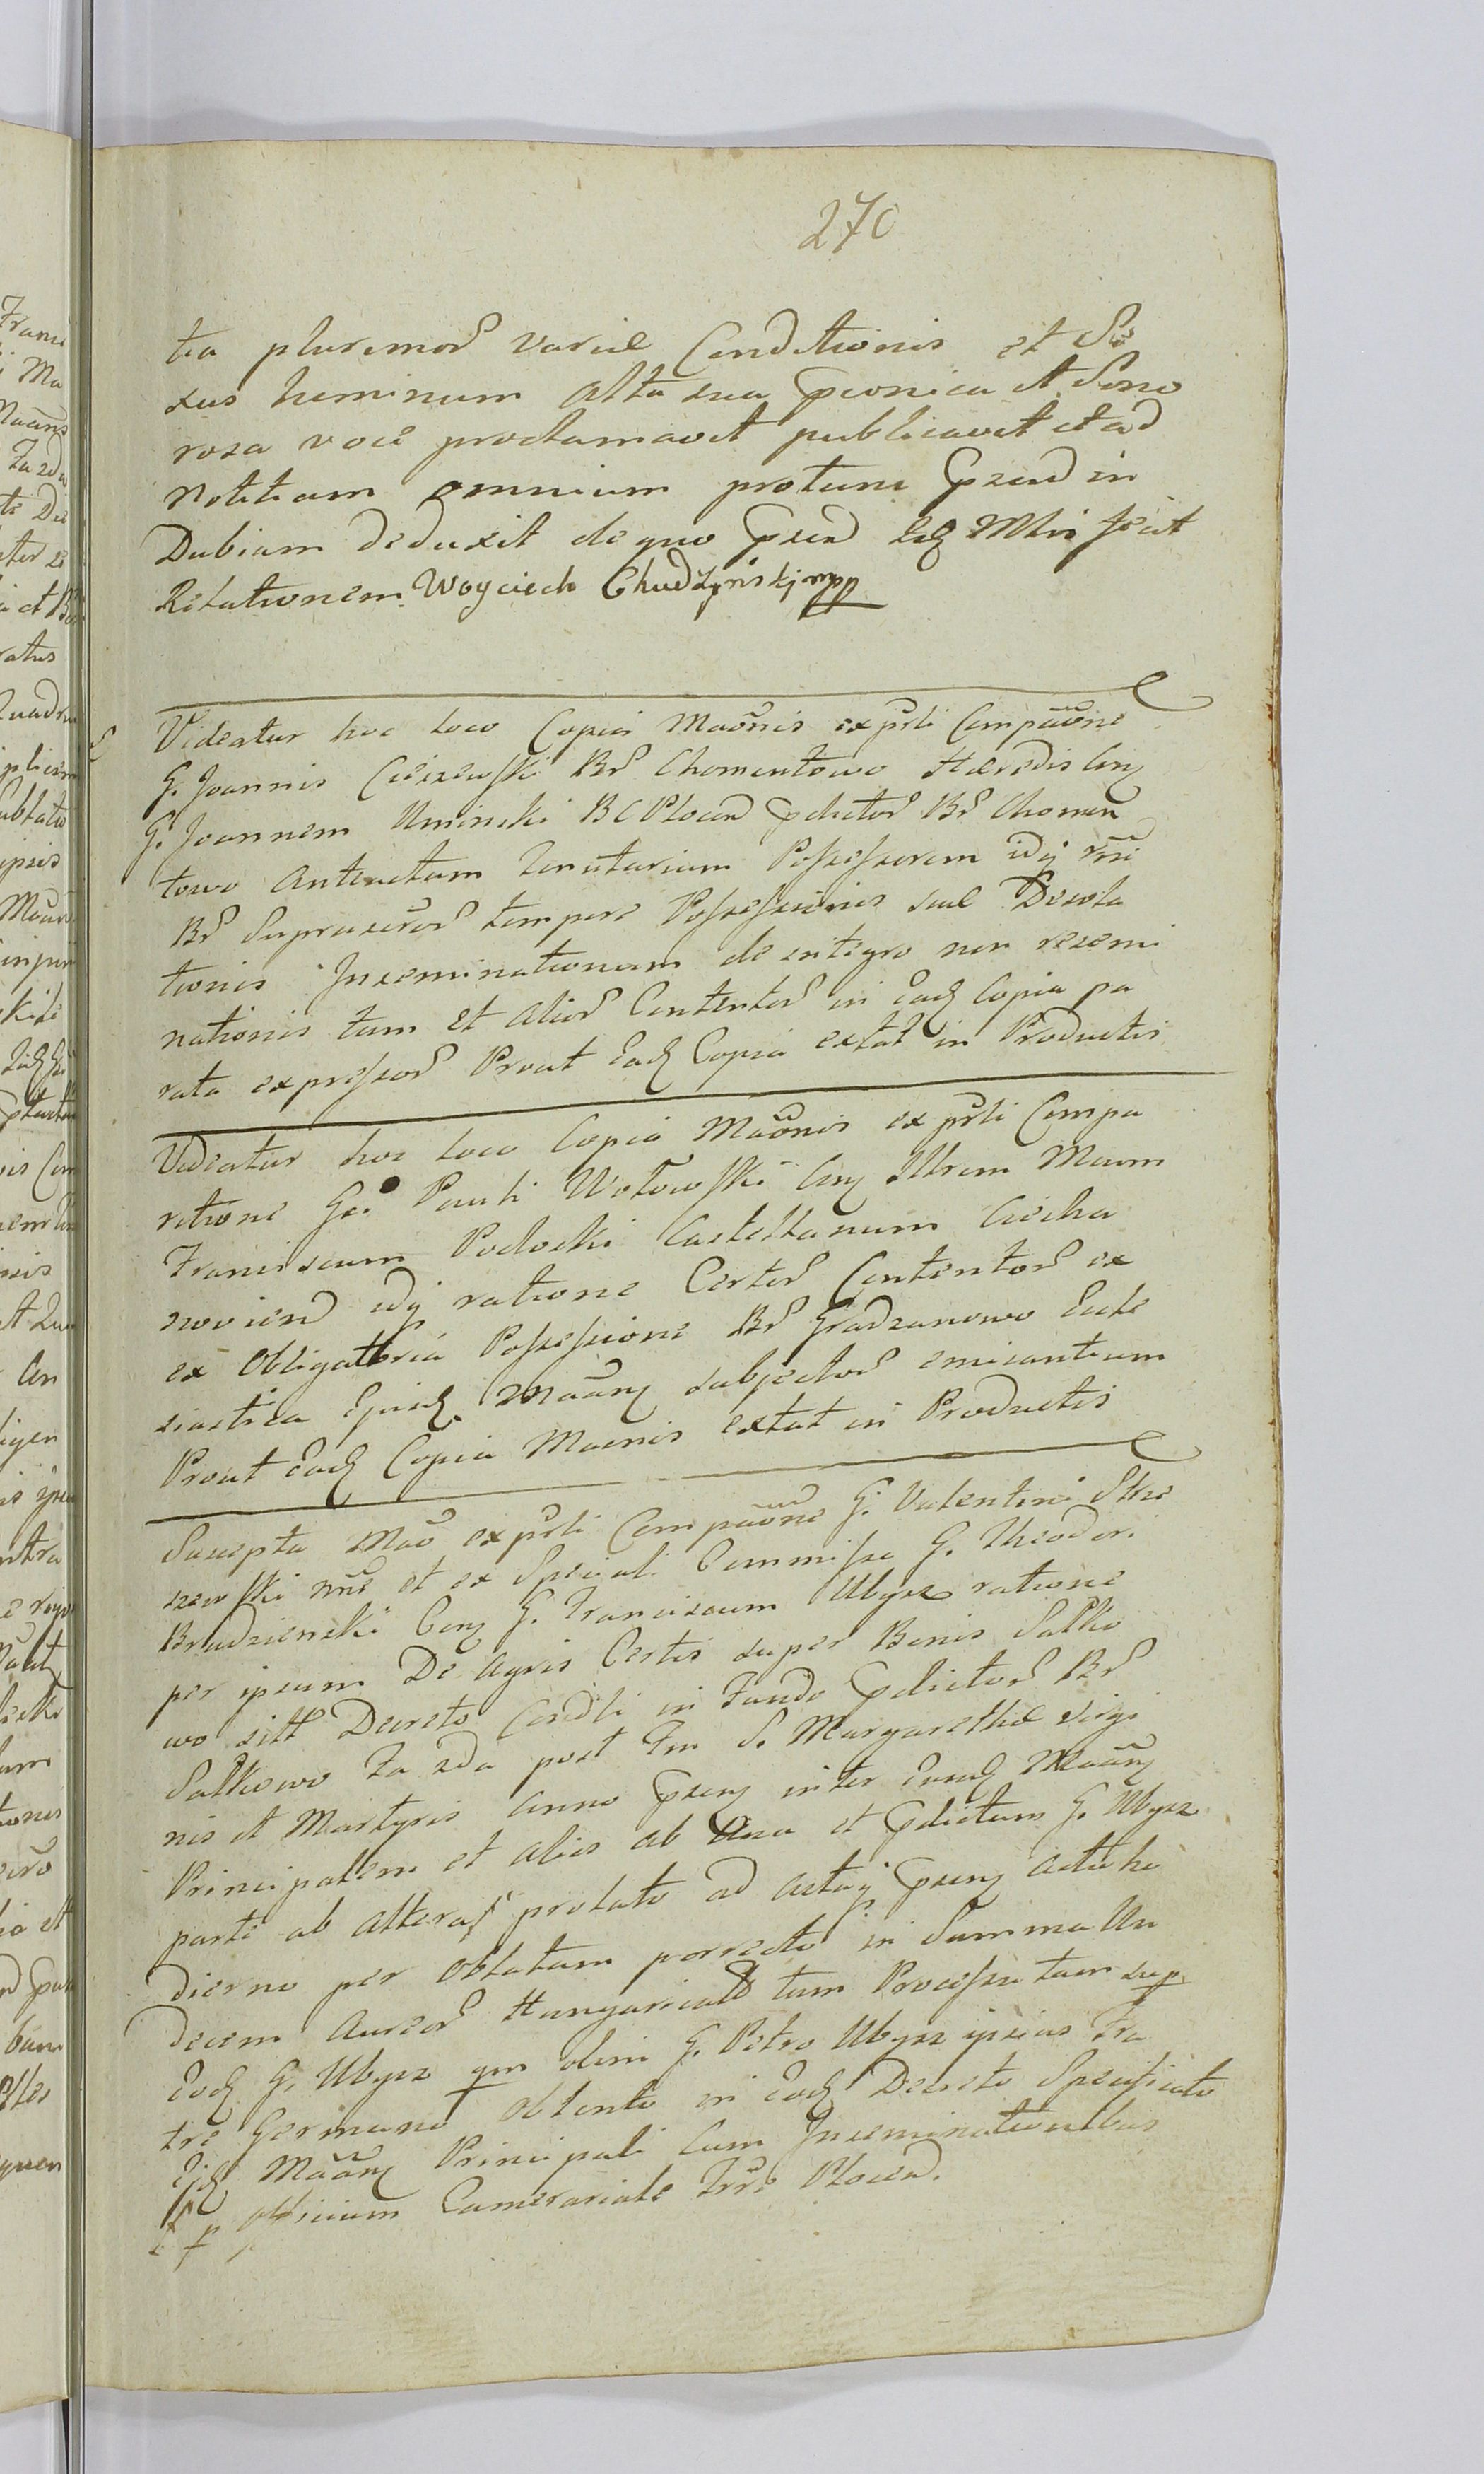 270
tia plurimor variæ Conditionis et Se
xus hominum alta sua Pronica et Sono
rosa voce proclamavit publicavit et ad
Notitiam omnium protunc Pnd in
Dubiam deduxit de quo Pnd idq Mtri fecit
Relationem Woyciech Chudzynskj mpp
Videatur hoc loco Copia Maonis ex prli Compaone
G. Joannis Cieszewski Br Chomentowo Hæredis Cnq
G. Joannem Uminski BC Plocen pdictor Br Chomen
towo Antenetum Tenutarium Possessorem idq rne
Br Suprascror tempore Possessionis suæ Desola
tionis Inseminationum de integro non resemi
nationis tum et alior Contentor in Eadq Copia pa
rata expressor Prout Eadq Copia extat in Productis
Videatur hoc loco Copia Maonis ex prli Compa
ritione G. Pauli Wotowski Cnq Illrem Mcum
Franciscum Podoski Castellanum Ciecha
novien idq ratione Certor Contentor ex
ex Obligatoria Possessione Br Gradzanowo Eccle
siastica Ejusdq Maanq subjector emicantium
Prout Eadq Copia Maonis extat in Productis
Suscepta Mao ex prli Compaone G. Valentini Strze
szewski nne et ex Speciali Commisso G. Theodori
Brudzienski Cnq G. Franciscum Ubysz ratione
per ipsum De Agris Certis super Bonis Sutko
wo sitt Decreto Condli in Fundo pdictor Br
Sutkowo Fa 2da post Fm S. Margarethæ Virgi
nis et Martyris Anno Psenq inter Eundq Maanq
Principalem et alios ab una et pdictum G. Ubysz
parte ab altera prolato ad Actaq psenq actu ho
dierno per oblatam porrecto in Summa Un
decem Aureor Hungarical tum Processu tam sup
Eodq G. Ubysz qm olim G. Petro Ubysz ipsius Fra
tre Germano obtento in Eodq Decreto Specificato
Eidq Maanq Principali Cum Inseminationibus
p officium Camerariale Trre Plocen.